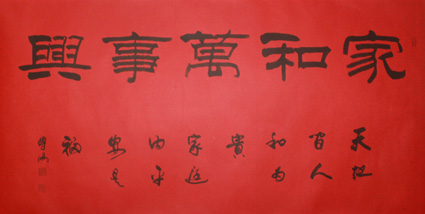 家和萬事興
天地
间人
和为
貴
家庭
内平
安是
福